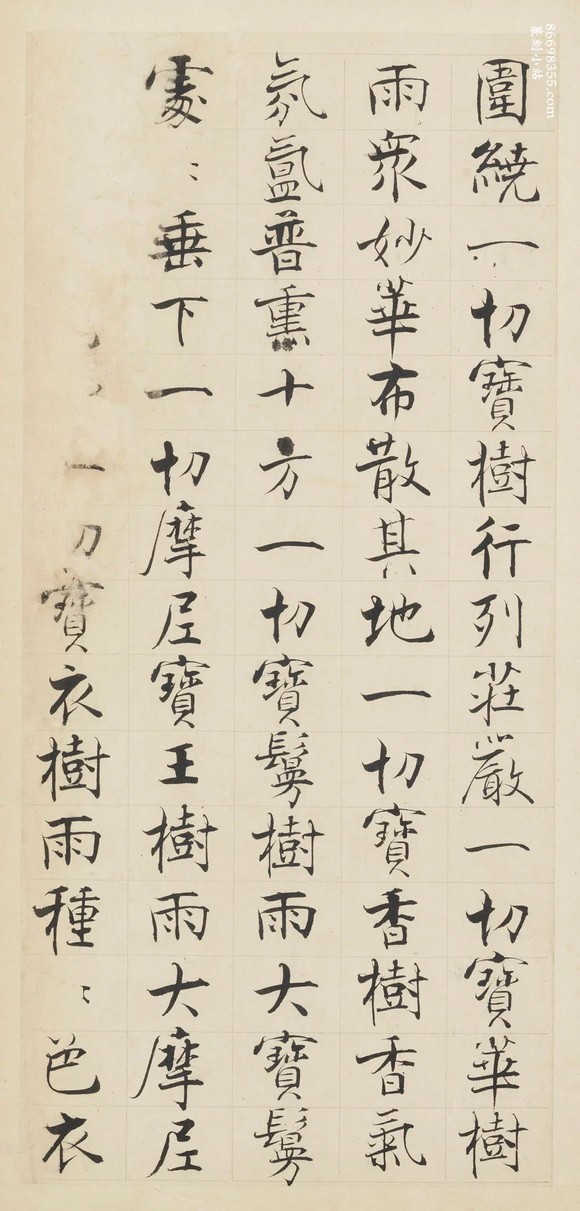 圍繞一切寶樹行列莊嚴一切寶華樹
雨衆妙華布散其地一切寶香樹香氣
氛氳普熏十方一切寶鬘樹雨大寶鬘
處〻垂下一切摩尼寶王樹雨大摩尼
一切寶衣樹雨種〻色衣
86698355.com
篆刻小站